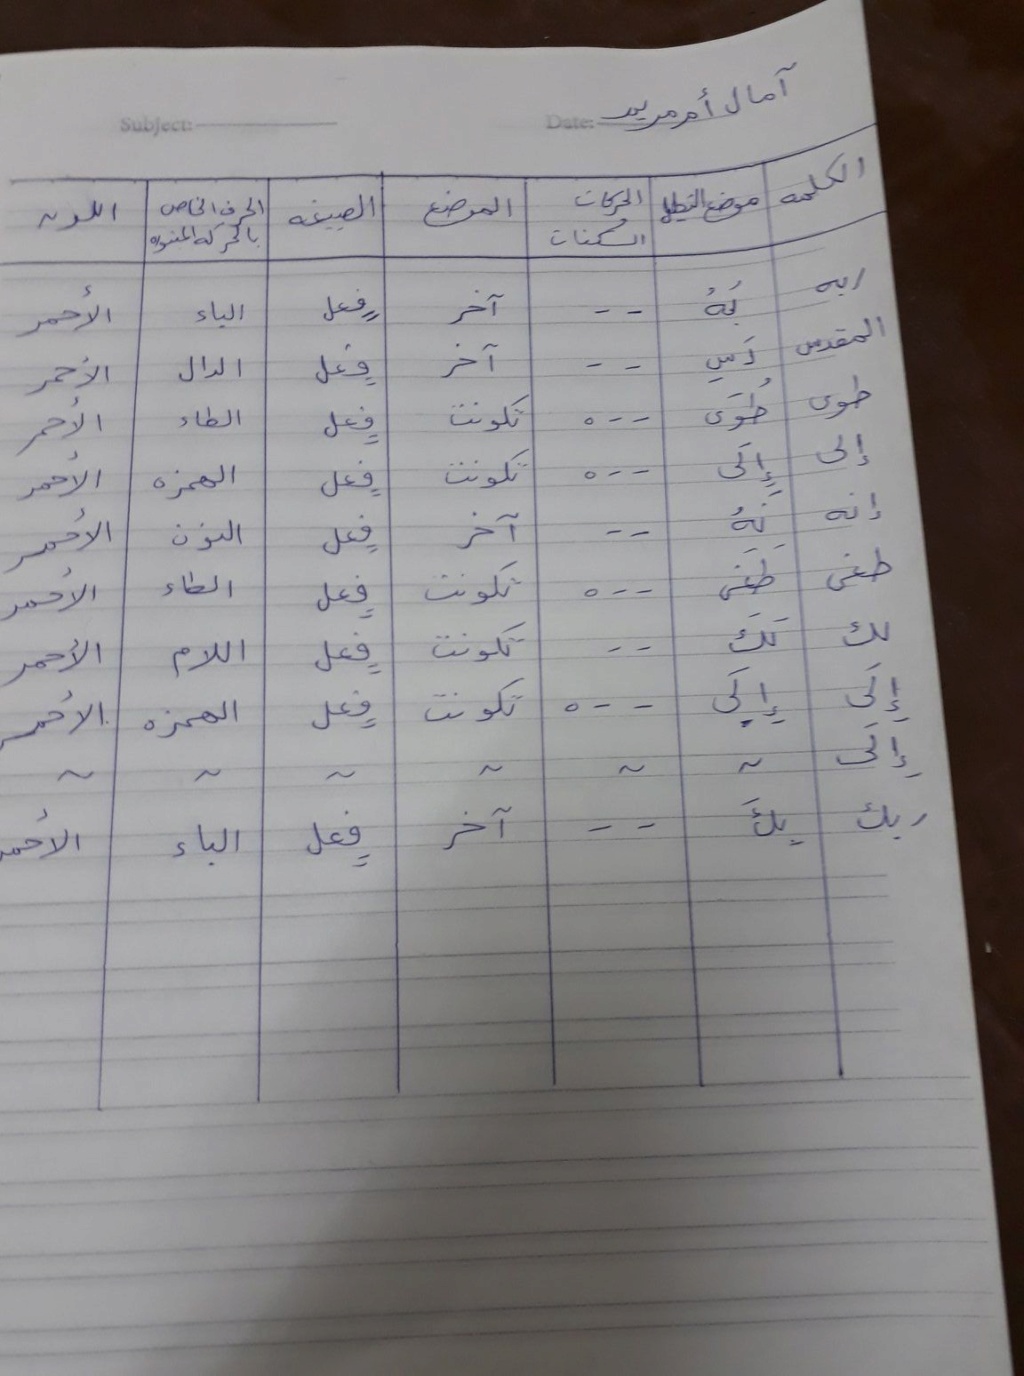 آمال أم مريم
Subject: Date:
الكلمه موضع الحركات الموضع الصيغه الحرف الخاص اللون
السكنات بالحركة
ربه بَهُ - - آخر فعل الباء الأحمر
المقدس دَسِ - - آخر فعل الدال الأحمر
طوى طُوَى - - ه تكونت فعل الطاء الأحمر
إلى إِلَى - - ه تكونت فعل الهمزه الأحمر
إنه نَهُ - - آخر فعل النون الأحمر
طغى طَغَى - - ه تكونت فعل الطاء الأحمر
لك لَكَ - - تكونت فعل اللام الأحمر
إِلَى إِلَى - - ه تكونت فعل الهمزه الأحمر
إِلَى ~ ~ ~ ~ ~ ~
ربك بِكَ - - آخر فعل الباء الأحمر